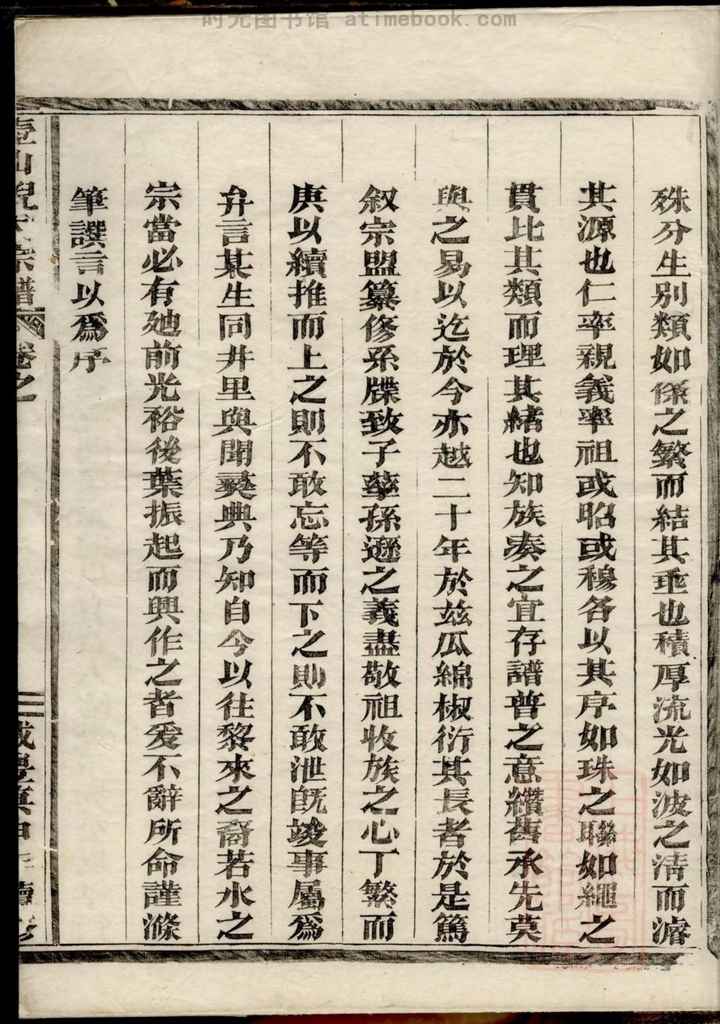 时光图书馆 atimebook.com
殊分生別類如係之繁而結其垂也積厚流光如波之清而濬
其源也仁率親義率祖或昭或穆各以其序如珠之聯如繩之
貫比其類而理其緒也知族奏之宜存譜普之意纘舊承先莫
與之易以迄於今亦越二十年於兹瓜綿椒衍其長者於是篤
叙宗盟纂修系牒致子孳孫遜之義盡敬祖收族之心丁繁而
庚以續推而上之則不敢忘等而下之則不敢泄既竣事屬爲
弁言某生同井里與聞彞典乃知自今以往黎來之裔若水之
宗當必有廸前光裕後葉振起而興作之者爰不辭所命謹滌
筆譔言以爲序
山倪氏宗譜 卷之 二 咸豐庚申年續修